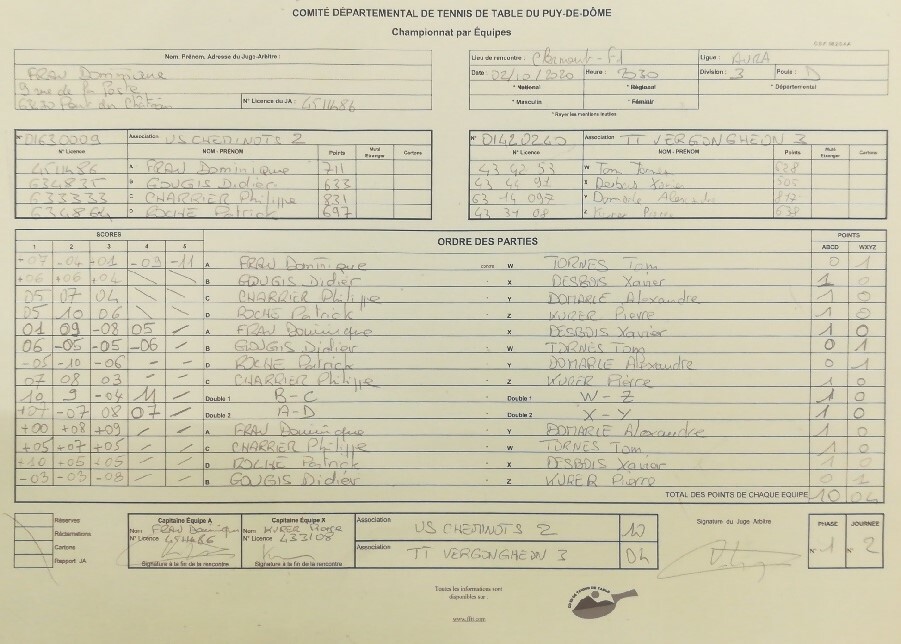 COMITÉ DÉPARTEMENTAL DE TENNIS DE TABLE DU PUY-DE-DÔME
Championnat par Équipes
Nom, Prénom, Adresse du Juge-Arbitre :
FRAU Dominique
9 rue de la Poste
N° Licence du JA : 4511486
Lieu de rencontre : Clermont-Fd
Ligue : AURA
Date : 02/10/2020 Heure : 2030 Division : 3 Poule : D
* National * Régional * Départemental
* Masculin * Féminin
* Rayer les mentions inutiles
N° 01630009 Association US CHEMINOTS 2
N° Licence NOM - PRÉNOM Points Muté Etranger Cartons
4511486 A FRAU Dominique 711
634835 B GOUGIS Didier 633
633333 C CHARRIER Philippe 831
634864 D ROCHE Patrick 697
N° 01420240 Association TT VERGONGHEON 3
N° Licence NOM - PRÉNOM Points Muté Etranger Cartons
43 42 53 W Tom 628
43 44 91 X Desbois Xavier 505
63 14 097 Y Domarle Alexandre
43 31 08 Z Kurer Pierre 638
SCORES ORDRE DES PARTIES POINTS
1 2 3 4 5 ABCD WXYZ
-07 -04 -01 -09 -11 A FRAU Dominique contre W TORNES Tom 0 1
+06 +06 +04 B GOUGIS Didier X DESBOIS Xavier 1 0
05 07 04 C CHARRIER Philippe Y DOMARLE Alexandre 1 0
05 10 06 D ROCHE Patrick Z KURER Pierre 1 0
01 09 -08 05 A FRAU Dominique X DESBOIS Xavier 1 0
06 -05 -05 -06 B GOUGIS Didier W TORNES Tom 0 1
-05 -10 -06 D ROCHE Patrick Y DOMARLE Alexandre 0 1
07 08 03 C CHARRIER Philippe Z KURER Pierre 1 0
10 9 -04 11 Double 1 B-C Double 1 W-Z 1 0
+07 -07 08 07 Double 2 A-D Double 2 X-Y 1 0
+00 +08 +09 A FRAU Dominique Y DOMARLE Alexandre 1 0
+05 +07 +05 C CHARRIER Philippe W TORNES Tom 1 0
+10 +05 +05 D ROCHE Patrick X DESBOIS Xavier 1 0
-03 -03 -08 B GOUGIS Didier Z KURER Pierre 0 1
TOTAL DES POINTS DE CHAQUE EQUIPE 10 04
Réserves
Réclamations
Cartons
Rapport JA
Capitaine Équipe A
Nom: FRAU Dominique
N° Licence 4511486
Signature à la fin de la rencontre
Capitaine Équipe X
Nom: KURER Pierre
N° Licence 433108
Signature à la fin de la rencontre
Association US CHEMINOTS 2 10
Association TT VERGONGHEON 3 04
Signature du Juge Arbitre
PHASE JOURNÉE
N° 1 N° 2
Toutes les informations sont
disponibles sur :
www.fftt.com